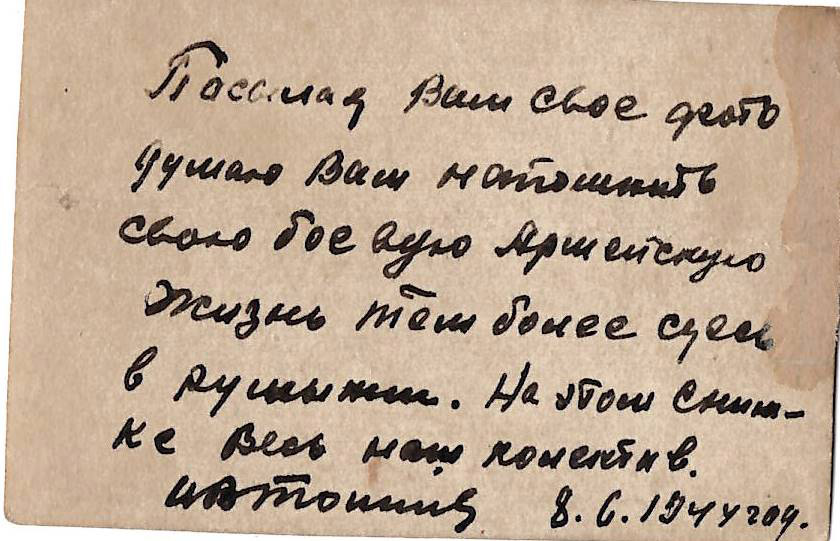 Посылая Вам свое фото
думаю Вам напомнить
свою боевую Армейскую
жизнь тем более сдесь
в румынии. На этом сним-
ке Весь наш колектив.
8.6.1944 год.